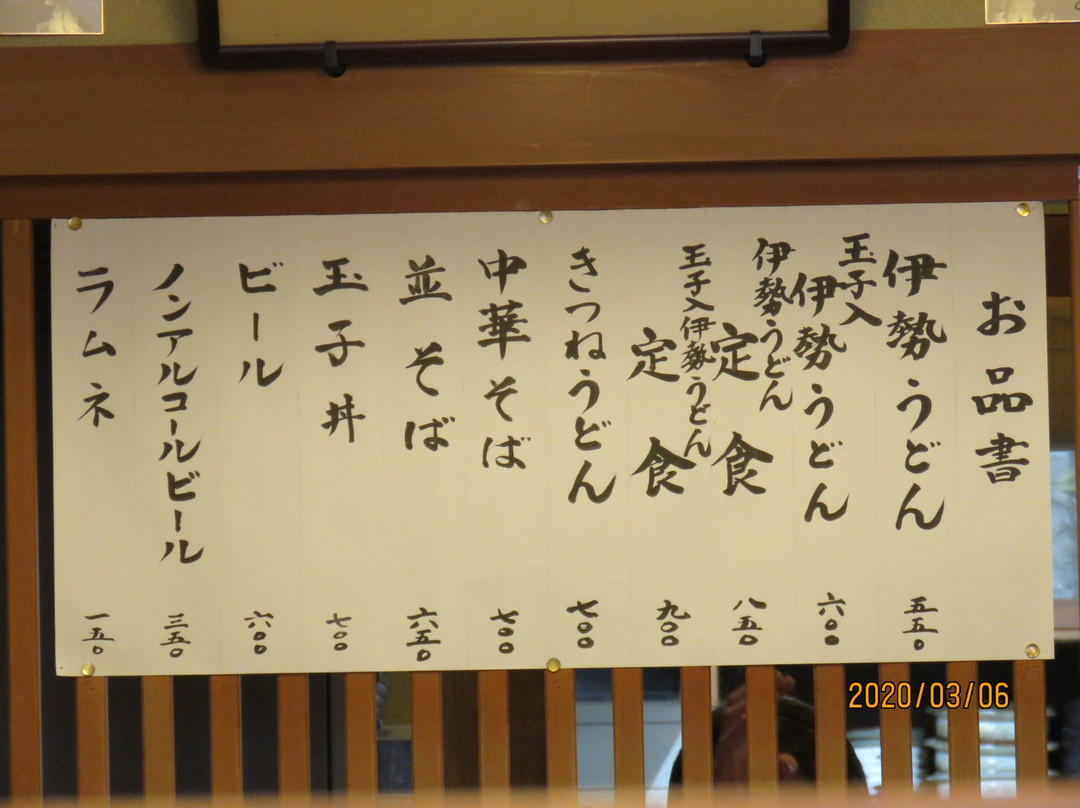 お品書
伊勢うどん 五五〇
玉子入
伊勢うどん 六〇〇
伊勢うどん
定食 八五〇
玉子入伊勢うどん
定食 九〇〇
きつねうどん 七〇〇
中華そば 七〇〇
並そば 六五〇
玉子丼 七〇〇
ビール 六〇〇
ノンアルコールビール 三五〇
ラムネ 一五〇
2020/03/06